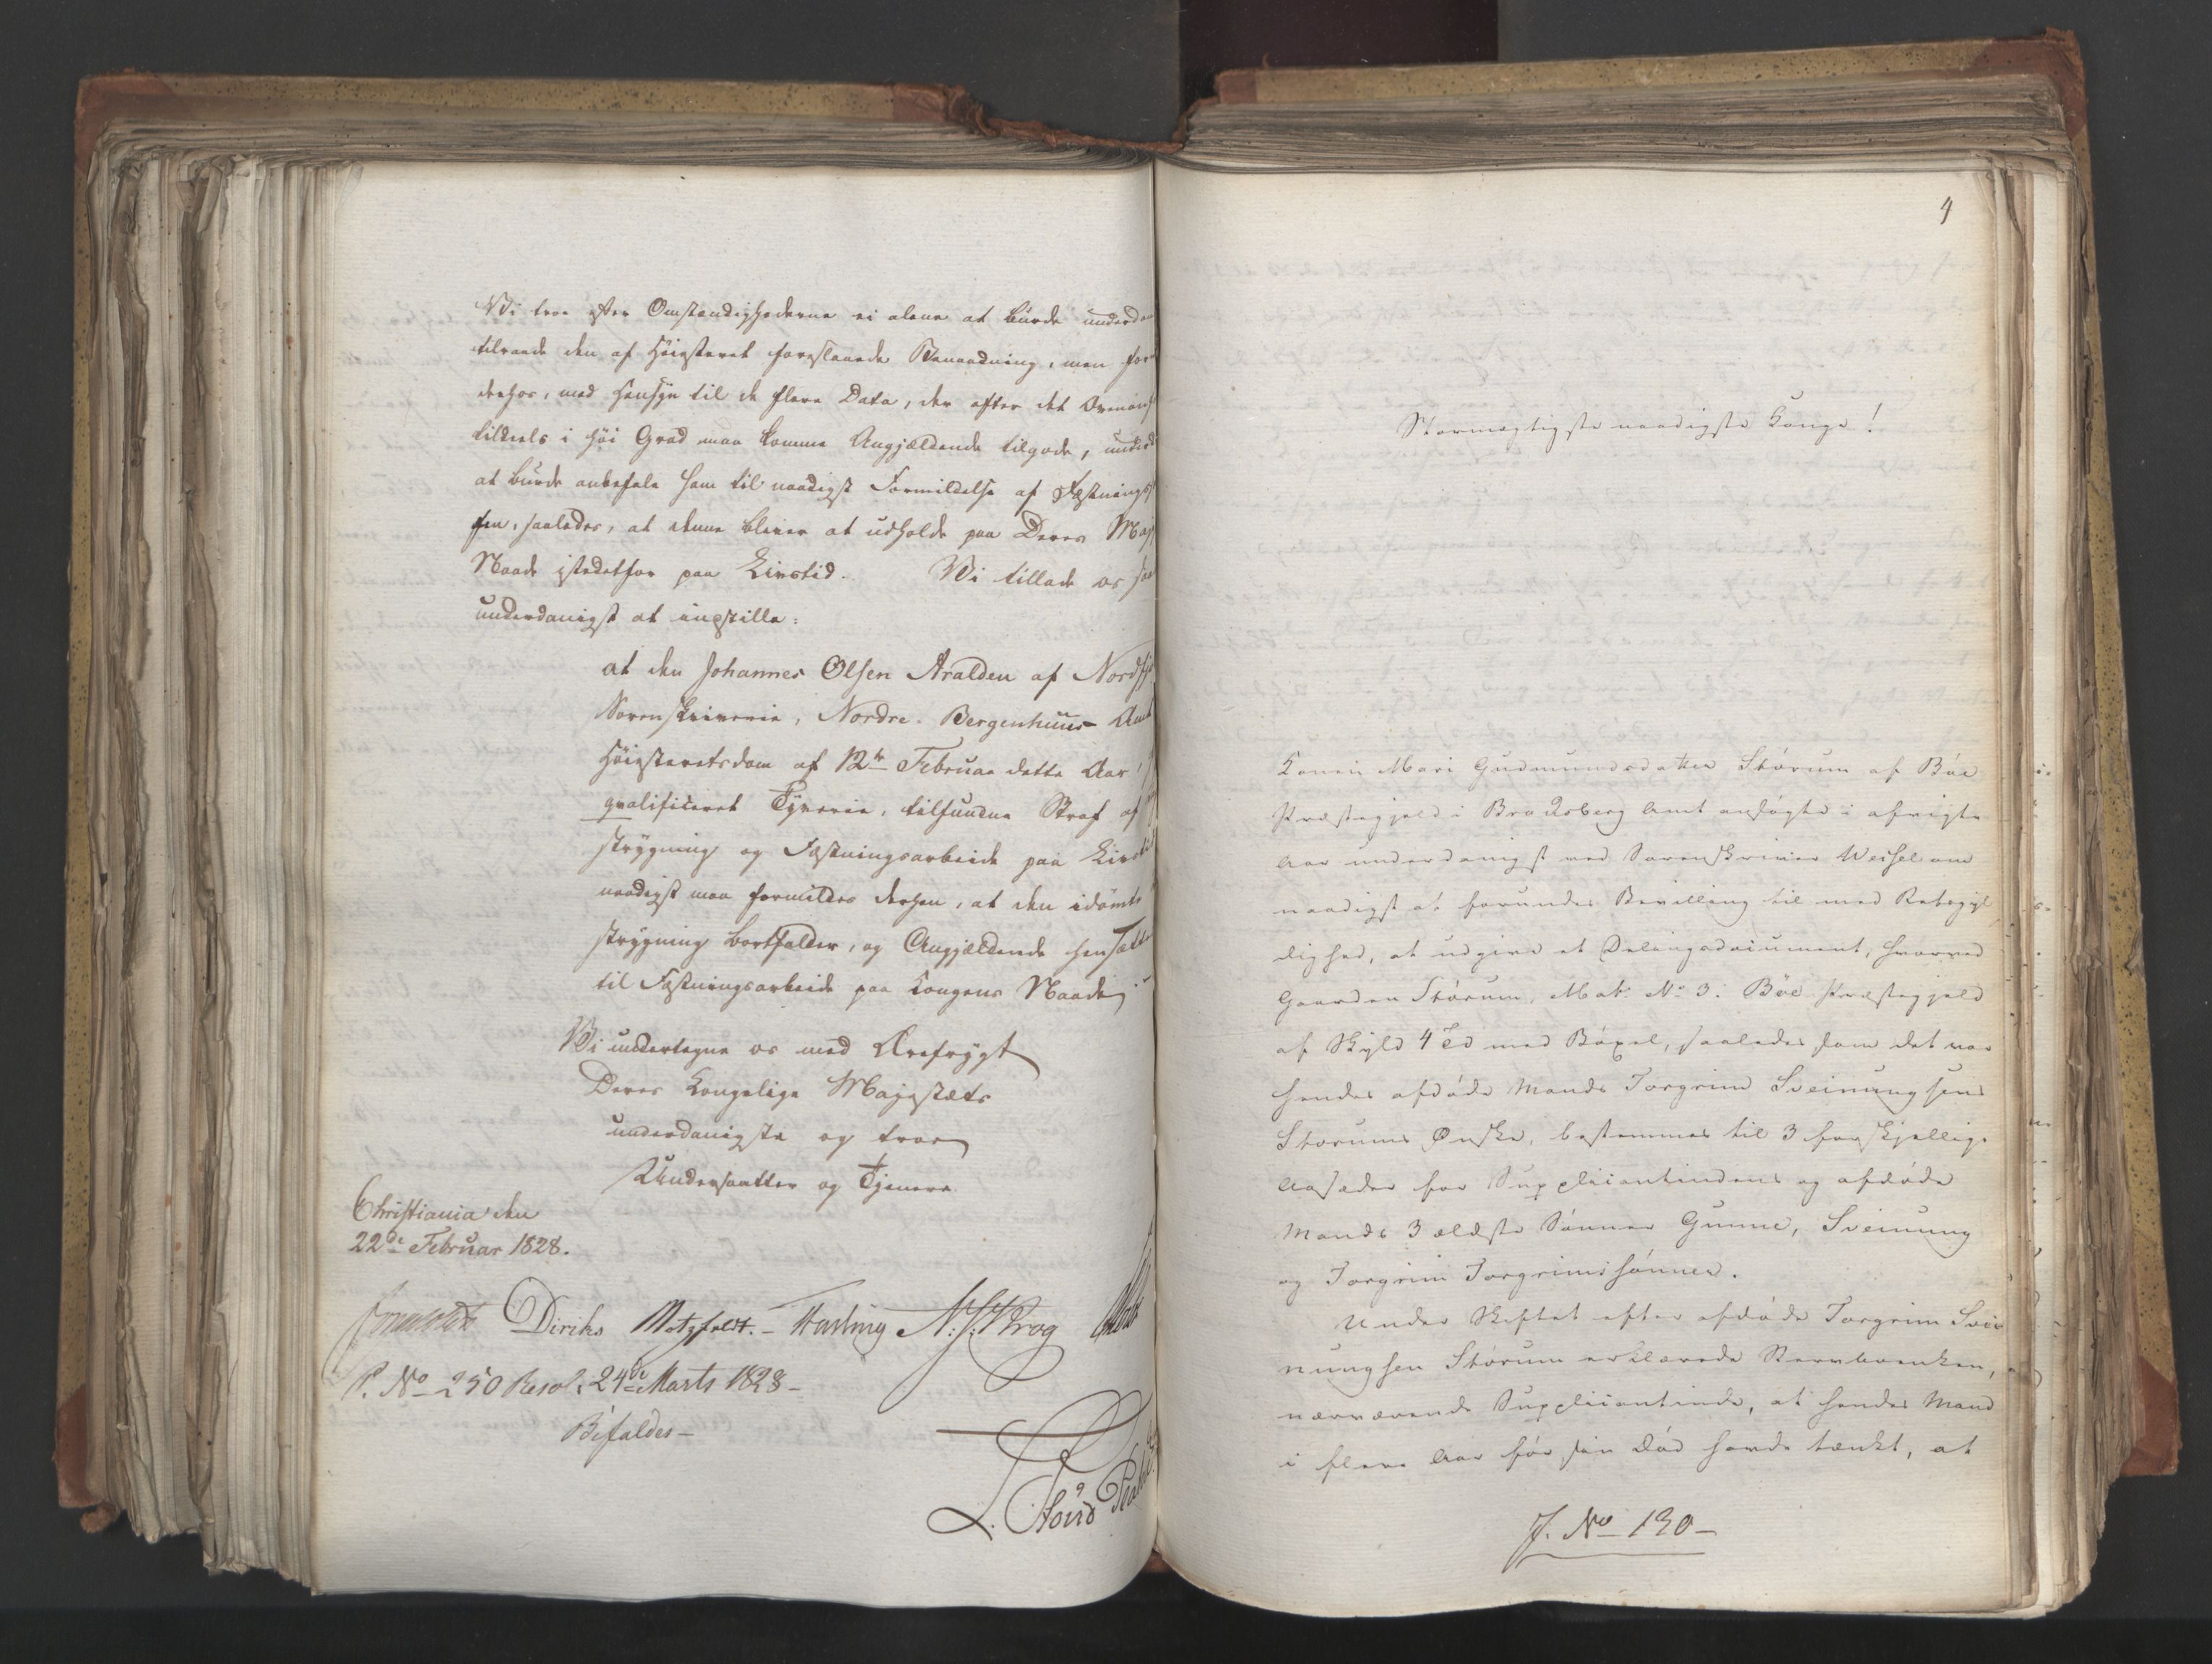 Vi troe efter Omstændighederne ei alene at burde underda
tilraade den af Høiesteret foreslaaede Benaadning, men for
derhos, med Hensyn til de flere Data, der efter det
tildeels i høi Grad maa komme Angjældende tilgode,
at burde anbefale ham til naadigst Formildelse af Fæstnings
sen, saaledes, at denne bliver at udholde paa Deres Maj
Naade istedetfor paa Livstid. Vi tillade os saa
underdanigst at indstille:
at den Johannes Olsen Aralden af Nordfj
Sorenskriverie, Nordre Bergenhuus Amt
Høiesteretsdom af 12te Februar dette Aar
qvalificeret Tyverie, tilfundne Straf af
strygning og Fæstningsarbeide paa Livstid
naadigst maa formildes derhen, at den idømte
strygning bortfalder, og Angjældende hensætte
til Fæstningsarbeide paa Kongens Naade.
Vi undertegne os med Ærefrygt
Deres Kongelige Majestæts
underdanigste og troe
Undersaatter og Tjenere
Christiania den
22de Februar 1828.
Diriks Motzfeldt. Fasting N: J: Krog
P. No 250 Resol. 24de Marts 1828 -
Bifaldes -
4
Stormægtigste naadigste Konge!
Konen Mari Gudmundsdatter Stórum af Böe
Præstegjeld i Bradsberg Amt ansøgte i afvigte
Aar underdanigst ved Sorenskriver Weisel om
naadigst at forundes Bevilling til med Retsgyl
dighed, at udgive et Delingsdocument, hvorved
Gaarden Stórum, Mat: No 3. Böe Præstegjeld
af Skyld 4 Td med Böxel, saaledes som det var
hendes afdøde Mands Torgrim Sveinungsens
Storums Ønske, bestemmes til 3 forskjellige
Aasæder for Supplicantindens og afdøde
Mands 3 ældste Sønner Gunne, Sveinung
og Torgrim Torgrimssønner.
Under Skiftet efter afdøde Torgrim Svei
nungsen Stórum erklærede Stervboenken,
nærværende Supplicantinde, at hendes Mand
i flere Aar før sin Død havde tænkt, at
J. No 130 -